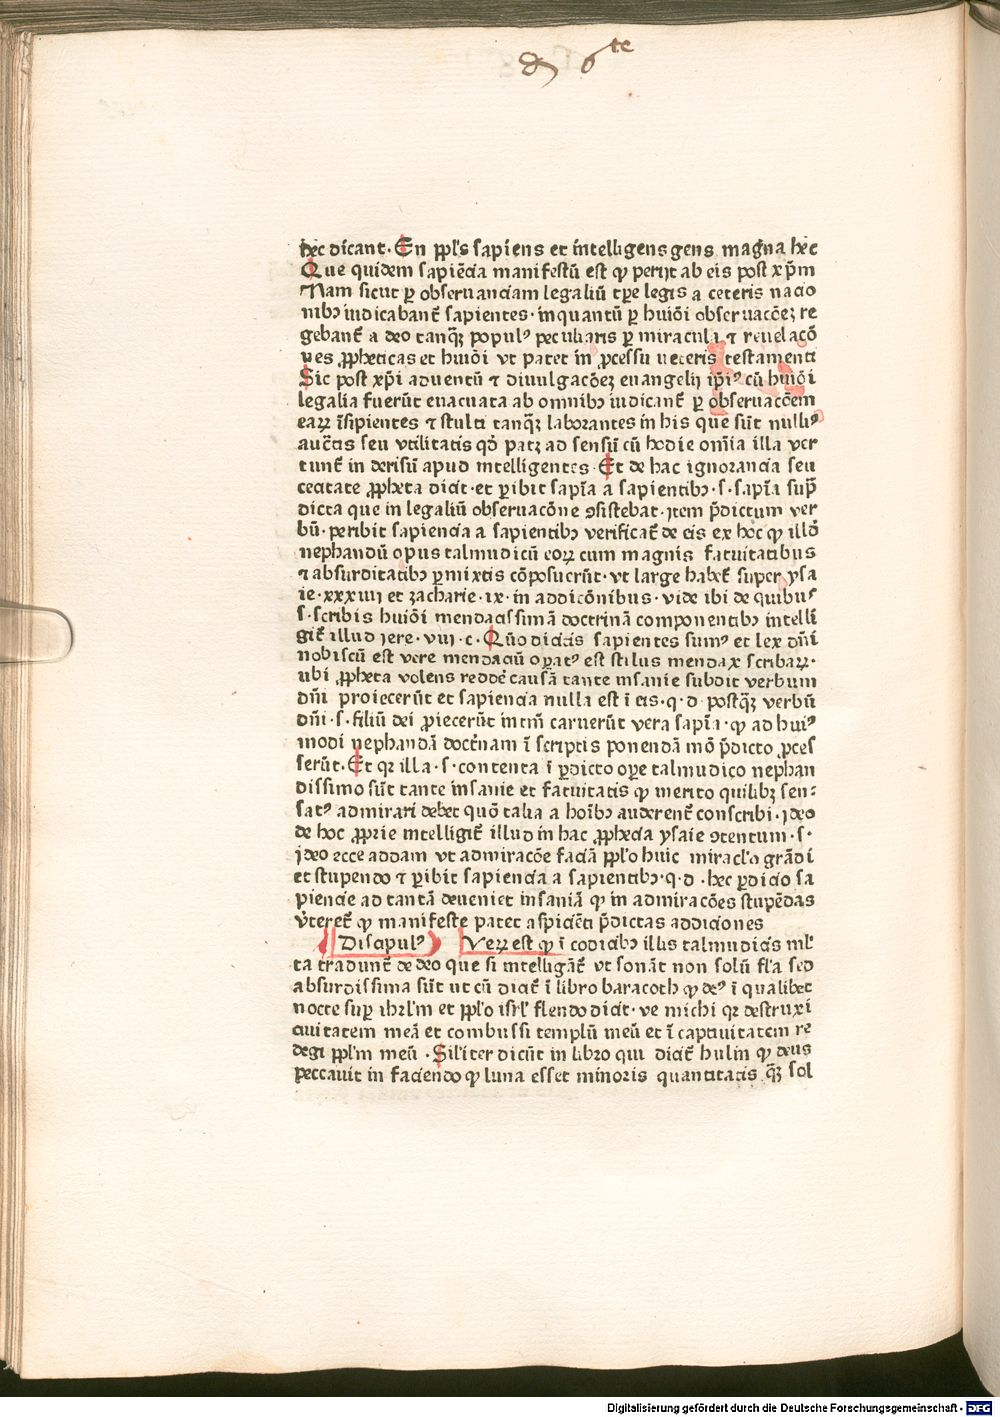 d 6te
hec dicant · En ppl's sapiens et intelligens gens magna hec
Que quidem sapiēcia manifestū est ꝙ perijt ab eis post xp̄m
Nam sicut ꝑ obseruanciam legaliū tꝑe legis a ceteris nacio
nibꝫ iudicabant᷑ sapientes · inquantū ꝑ huiōi obseruacōeꝫ re
gebant᷑ a deo tanqꝫ popul᷒ peculiaris ꝑ miracula ⁊ reuelacō
nes ꝓpheticas et huiōi vt patet in ꝓcessu veteris testamenti
Sic post xp̄i aduentū ⁊ diuulgacōeꝫ euangelij ip̄i᷒ cū huiōi
legalia fuerūt euacuata ab omnibꝫ iudicant᷑ ꝑ obseruacōem
eaꝝ īsipientes ⁊ stulti tanqꝫ laborantes in his que sūt nulli᷒
auc̄tis seu vtilitatis qd̄ patꝫ ad sensū cū hodie om̄ia illa ver
tunt᷑ in derisū apud intelligentes · Et de hac ignorancia seu
cecitate ꝓpheta dicit · et ꝑibit sapīa a sapientibꝫ · s · sapīa sup̄
dicta que in legaliū obseruacōne ꝯsistebat · jtem p̄dictum ver
bū · peribit sapiencia a sapientibꝫ verificat᷑ de eis ex hoc ꝙ illd̄
nephandū opus talmudicū eoꝝ cum magnis fatuitatibus
⁊ absurditatibꝫ ꝑmixtis cōposuerūt · vt large habet᷑ super ysa
ie · xxxiiij et zacharie · ix · in addicōnibus · vide ibi de quibu᷒
s · scribis huiōi mendacissimā doctrinā componentibꝫ intelli
git᷑ illud jere · viij · c · Quō dicitis sapientes sum᷒ et lex dn̄i
nobiscū est vere mendaciū oꝑat᷒ est stilus mendax scribaꝝ ·
ubi ꝓpheta volens redde᷑ causā tante insanie subdit verbum
dn̄i proiecerūt et sapiencia nulla est ī eis · q · d · postqꝫ verbū
dn̄i · s · filiū dei ꝓiecerūt intm̄ caruerūt vera sapīa · ꝙ ad hui᷒
modi nephandā doct᷑nam ī scriptis ponendā mō p̄dicto ꝓces
serūt · Et qꝛ illa · s · contenta ī ꝑdicto oꝑe talmudico nephan
dissimo sūt tante insanie et fatuitatis ꝙ merito quilibꝫ sen:
sat᷒ admirari debet quō talia a hoībꝫ auderent᷑ conscribi · jdeo
de hoc ꝓprie intelligit᷑ illud in hac ꝓphecia ysaie ꝯtentum · s ·
jdeo ecce addam vt admiracōe faciā ppl'o huic miracl'o grādi
et stupendo ⁊ ꝑibit sapiencia a sapientibꝫ · q · d · hec ꝑdicio sa
piencie ad tantā deueniet insaniā ꝙ in admiracōes stupēdas
v̓teret᷑ ꝙ manifeste patet aspiciēti p̄dictas addiciones
Discipul᷒ Veꝝ est ꝙ ī codicibꝫ illis talmudicis ml'
ta tradunt᷑ de deo que si intelligāt᷑ vt sonāt non solū fl'a sed
absurdissima sūt ut cū dicit᷑ ī libro baracoth ꝙ de᷒ ī qualibet
nocte suꝑ ihrl'm et ppl'o isrl' flendo dicit · ve michi qꝛ destruxi
ciuitatem meā et combussi templū meū et ī captiuitatem re
degi ppl'm meū · Sil'iter dicūt in libro qui dicit᷑ hulin ꝙ deus
peccauit in faciendo ꝙ luna esset minoris quantitatis qꝫ sol
Digitalisierung gefördert durch die Deutsche Forschungsgemeinschaft - DFG